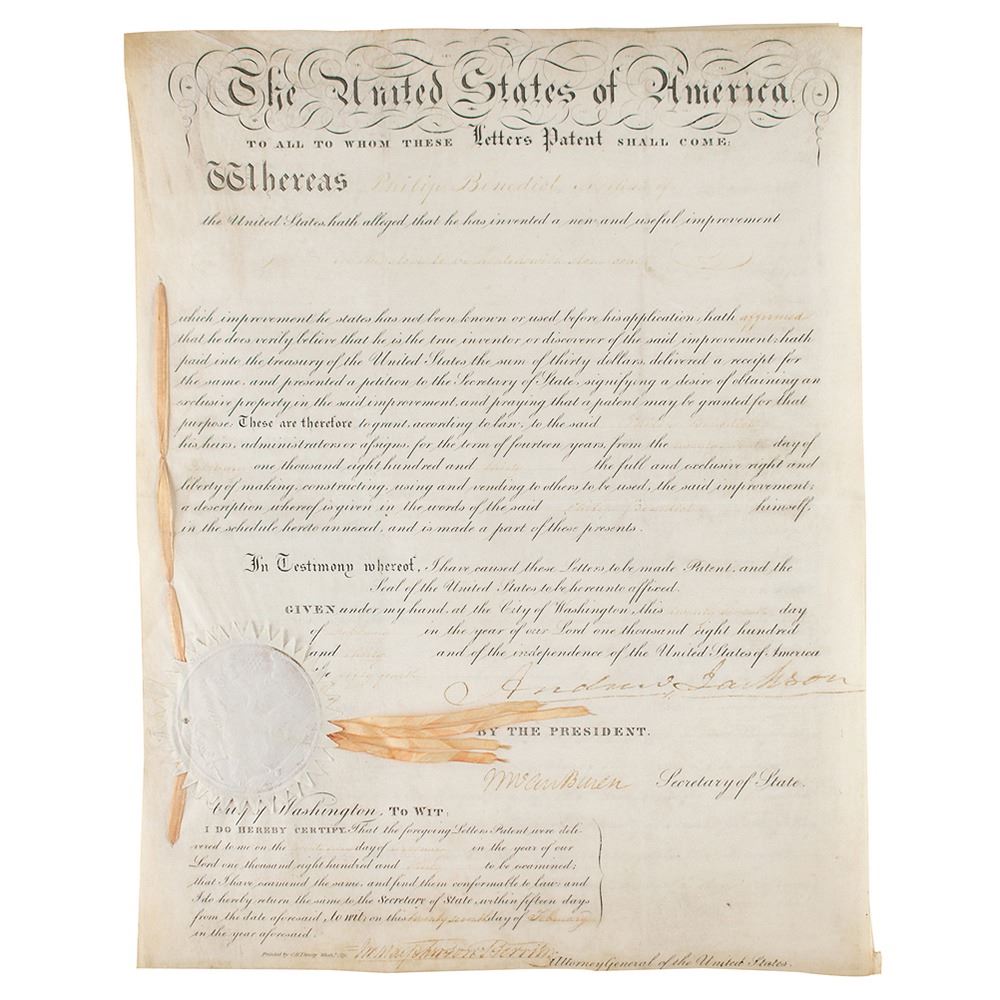 The United States of America.
TO ALL TO WHOM THESE Letters Patent SHALL COME:
Whereas Philip Benedict
the United States, hath alleged that he has invented a new and useful improvement
which improvement he states has not been known or used before his application, hath affirmed
that he does verily believe that he is the true inventor or discoverer of the said improvement, hath
paid into the treasury of the United States the sum of thirty dollars, delivered a receipt for
the same, and presented a petition to the Secretary of State, signifying a desire of obtaining an
exclusive property in the said improvement, and praying that a patent may be granted for that
purpose. These are therefore to grant, according to law, to the said Philip Benedict
his heirs, administrators or assigns, for the term of fourteen years, from the day of
one thousand eight hundred and the full and exclusive right and
liberty of making, constructing, using and vending to others to be used, the said improvement;
a description whereof is given in the words of the said Philip Benedict himself,
in the schedule hereto annexed, and is made a part of these presents.
In Testimony whereof, I have caused these Letters to be made Patent, and the
Seal of the United States to be hereunto affixed.
GIVEN under my hand, at the City of Washington, this day
of in the year of our Lord one thousand eight hundred
and and of the independence of the United States of America
Andrew Jackson
BY THE PRESIDENT.
M Van Buren Secretary of State.
City of Washington, TO WIT:
I DO HEREBY CERTIFY, That the foregoing Letters Patent were deli-
vered to me on the day of in the year of our
Lord one thousand eight hundred and to be examined;
that I have examined the same, and find them conformable to law; and
I do hereby return the same to the Secretary of State, within fifteen days
from the date aforesaid, to wit: on this twenty seventh day of February
in the year aforesaid.
Attorney General of the United States.